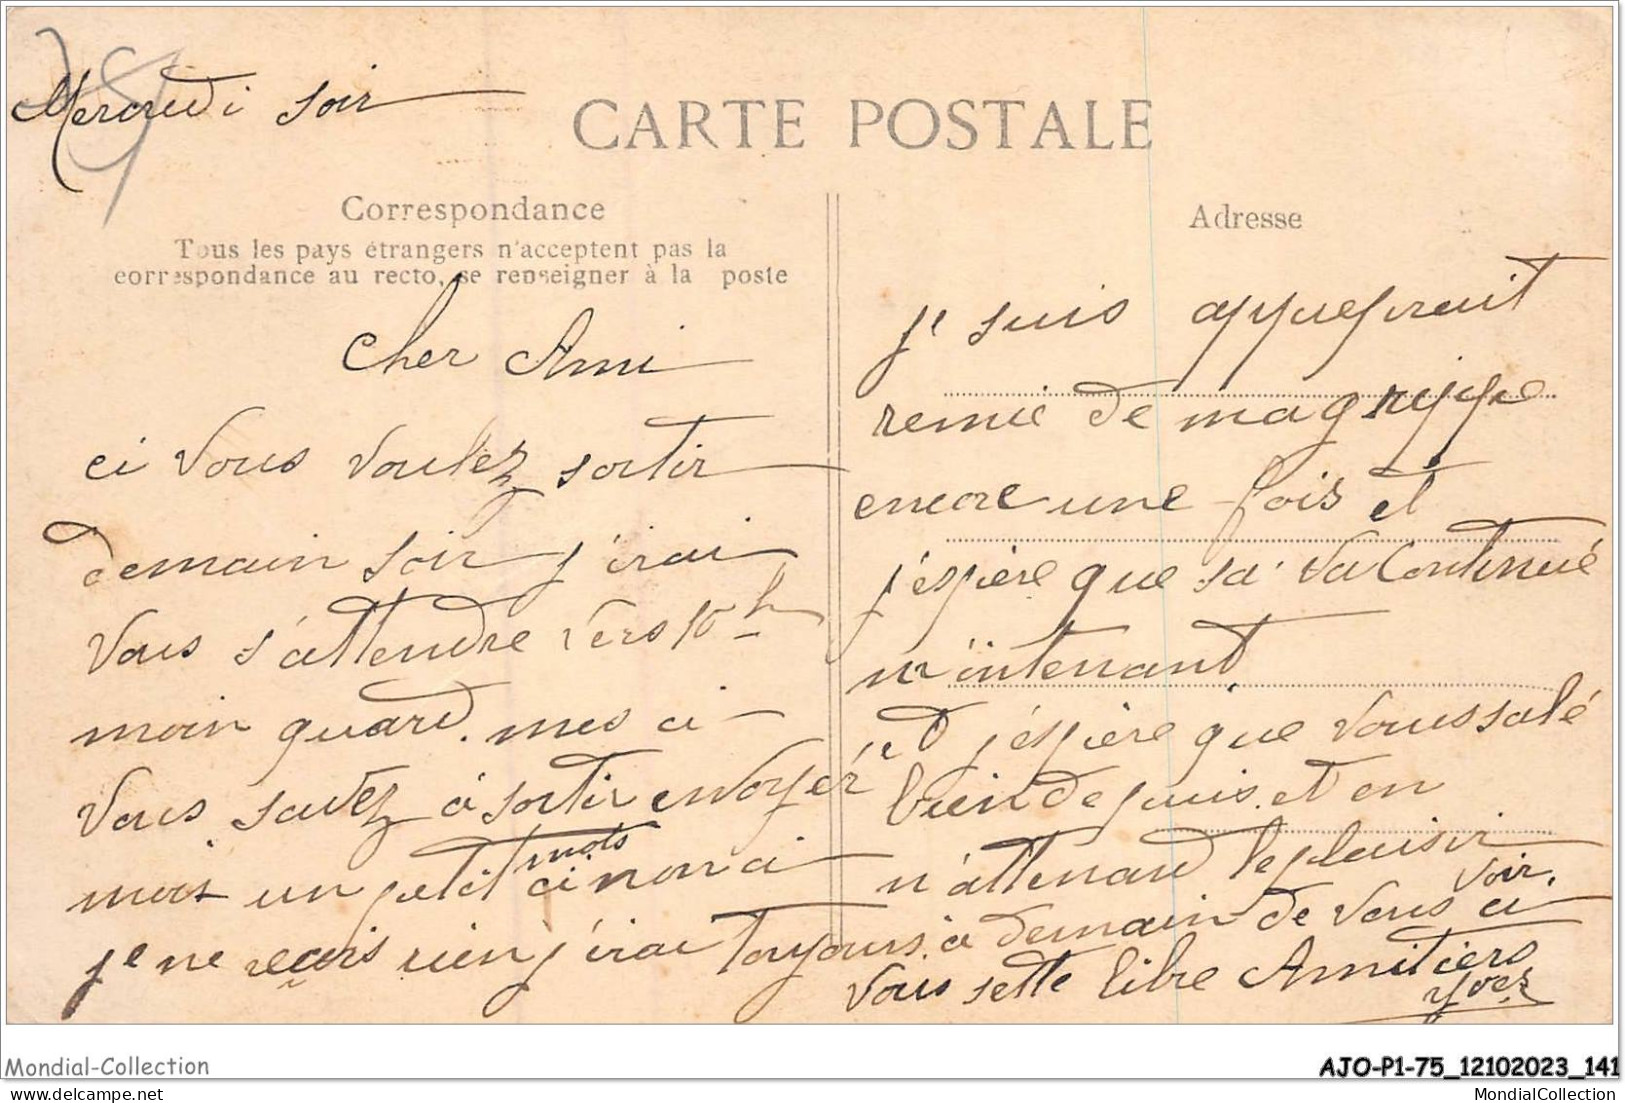 Mercredi soir
CARTE POSTALE
Correspondance
Tous les pays étrangers n'acceptent pas la
correspondance au recto, se renseigner à la poste
Cher Ami
ci vous voulez sortir
demain soir j'irai
vous s'attendre vers 10 h
moin quard. mes ci
vous savez à sortir envoyér
mois un petit mots ci non ci
je ne reçois rien j'irai toujours à demain
Adresse
je suis appueprait
remie de magrippe
encore une fois et
j'éspière que sa va Continué
m'intenant
et j'éspière que vous salé
bien depuis. et en
n'attenand le plaisir
de vous voir. ci
vous sette libre Amitiers
Yves
Mondial-Collection
AJO-P1-75_12102023_141
MondialCollection